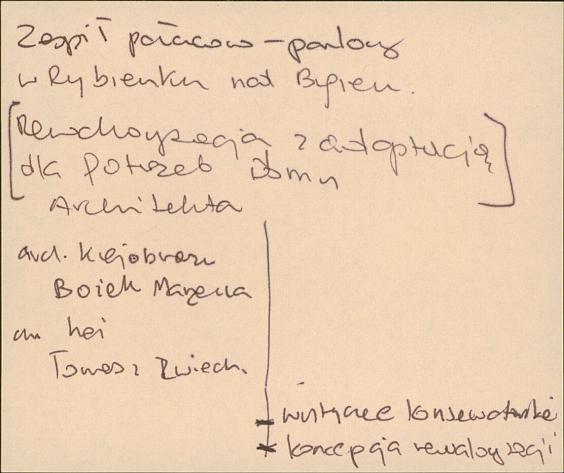 Zespół pałacowo-parkowy
w Rybienku nad Bugiem.
[Rewaloryzacja z adaptacją
dla potrzeb Domu
Architekta]
arch. krajobrazu
Bożek Marzena
Tomasz
wytyczne konserwatorskie
koncepcja rewaloryzacji